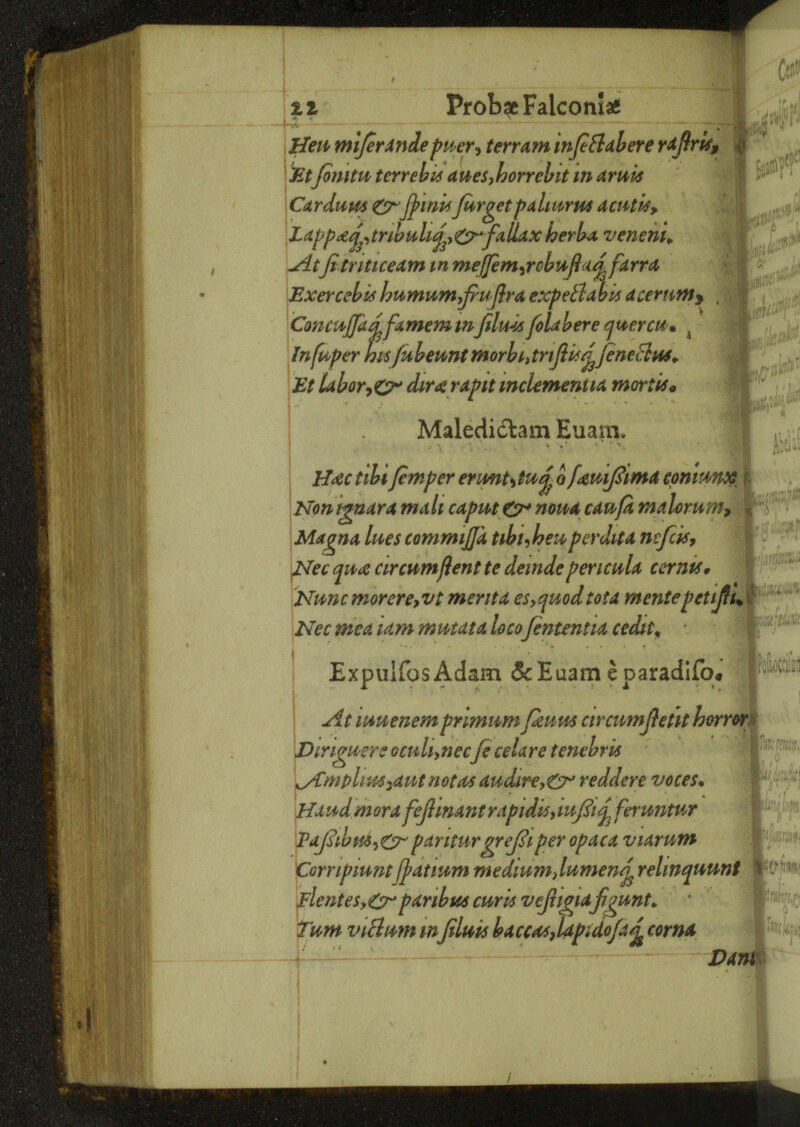 22 Probæ Falconiæ
Heu miserande puer, terram insectabere rastris,
Et sonitu terrebis aues, horrebit in aruis
Carduus & spinis surget paliurus acutis,
Lappæq́, tribuliq́, & fallax herba veneni.
At si triticeam in messem, robustaq́ farra
Exercebis humum, frustra expectabis aceruum,
Concussaq́ famem in siluis solabere quercu.
Insuper his subeunt morbi, tristisq́ senectus.
Et labor, & diræ rapit inclementia mortis.
Maledictam Euam.
Hæc tibi semper erunt, tuq́ ô sæuissima coniunx
Non ignara mali caput & noua causa malorum,
Magna lues commissa tibi, heu perdita nescis,
Nec quæ circumstent te deinde pericula cernis.
Nunc morere, vt merita es, quod tota mente petisti.
Nec mea iam mutata loco sententia cedit.
Expulsos Adam & Euam è paradiso.
At iuuenem primum sæuus circumstetit horror
Diriguere oculi, nec se celare tenebris
Amplius, aut notas audire, & reddere voces.
Haud mora festinant rapidis, iussiq́ feruntur
Passibus, & paritur gressi per opaca viarum
Corripiunt spatium medium, lumenq́ relinquunt
Flentes, & paribus curis vestigia figunt.
Tum victum in siluis baccas, lapidosaq́ corna
Dant